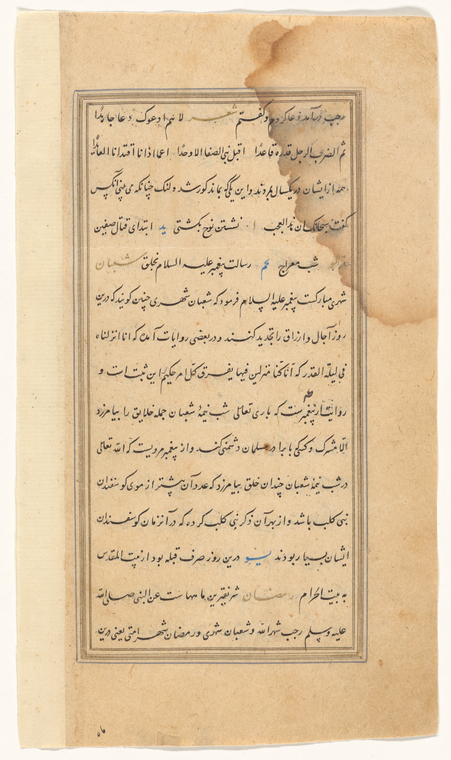 رجب درآمد دعا کردم و گفتم شعر لا هم ادعوک دعا جاهدا
ثم اضرب الرجل فذره قاعدا اقبل بنی الصفا الا واحدا اعمی اذا
همه از ایشان در یکسال بمردند و این یکی بماند کور شد و لنک چنانکه می بینی انکس
کفت سبحانک ان هذا لعجب ا نشستن نوح بکشتی ید ابتدای قتال صفین
شب معراج رسالت پیغمبر علیه السلام بخلق شعبان
شهری مبارکست پیغمبر علیه السلام فرمود که شعبان شهری چنین کویند که درین
روز آجال و ارزاق را تجدید کنند و در بعضی روایات آمده که انا انزلناه
فی لیلة القدر که انا کنا منزلین فیها یفرق کل امر حکیم این شب است و
روایت از پیغمبرست که باری تعالی شب نیمهٔ شعبان جمله خلایق را بیامرزد
الا مشرک و کسی با برادر مسلمان دشمنی کند و از پیغمبر مرویست که الله تعالی
در شب نیمهٔ شعبان چندان خلق بیامرزد که عدد آن بیشتر از موی کوسفندان
بنی کلب باشد و از بهر آن ذکر بنی کلب کرده که در آن زمان کوسفندان
ایشان بسیار بودند درین روز صرف قبله بود از بیت المقدس
به بیت الحرام رمضان شریفترین ماههاست عن النبی صلی الله
علیه وسلم رجب شهر الله و شعبان شهری و رمضان شهر امتی یعنی درین